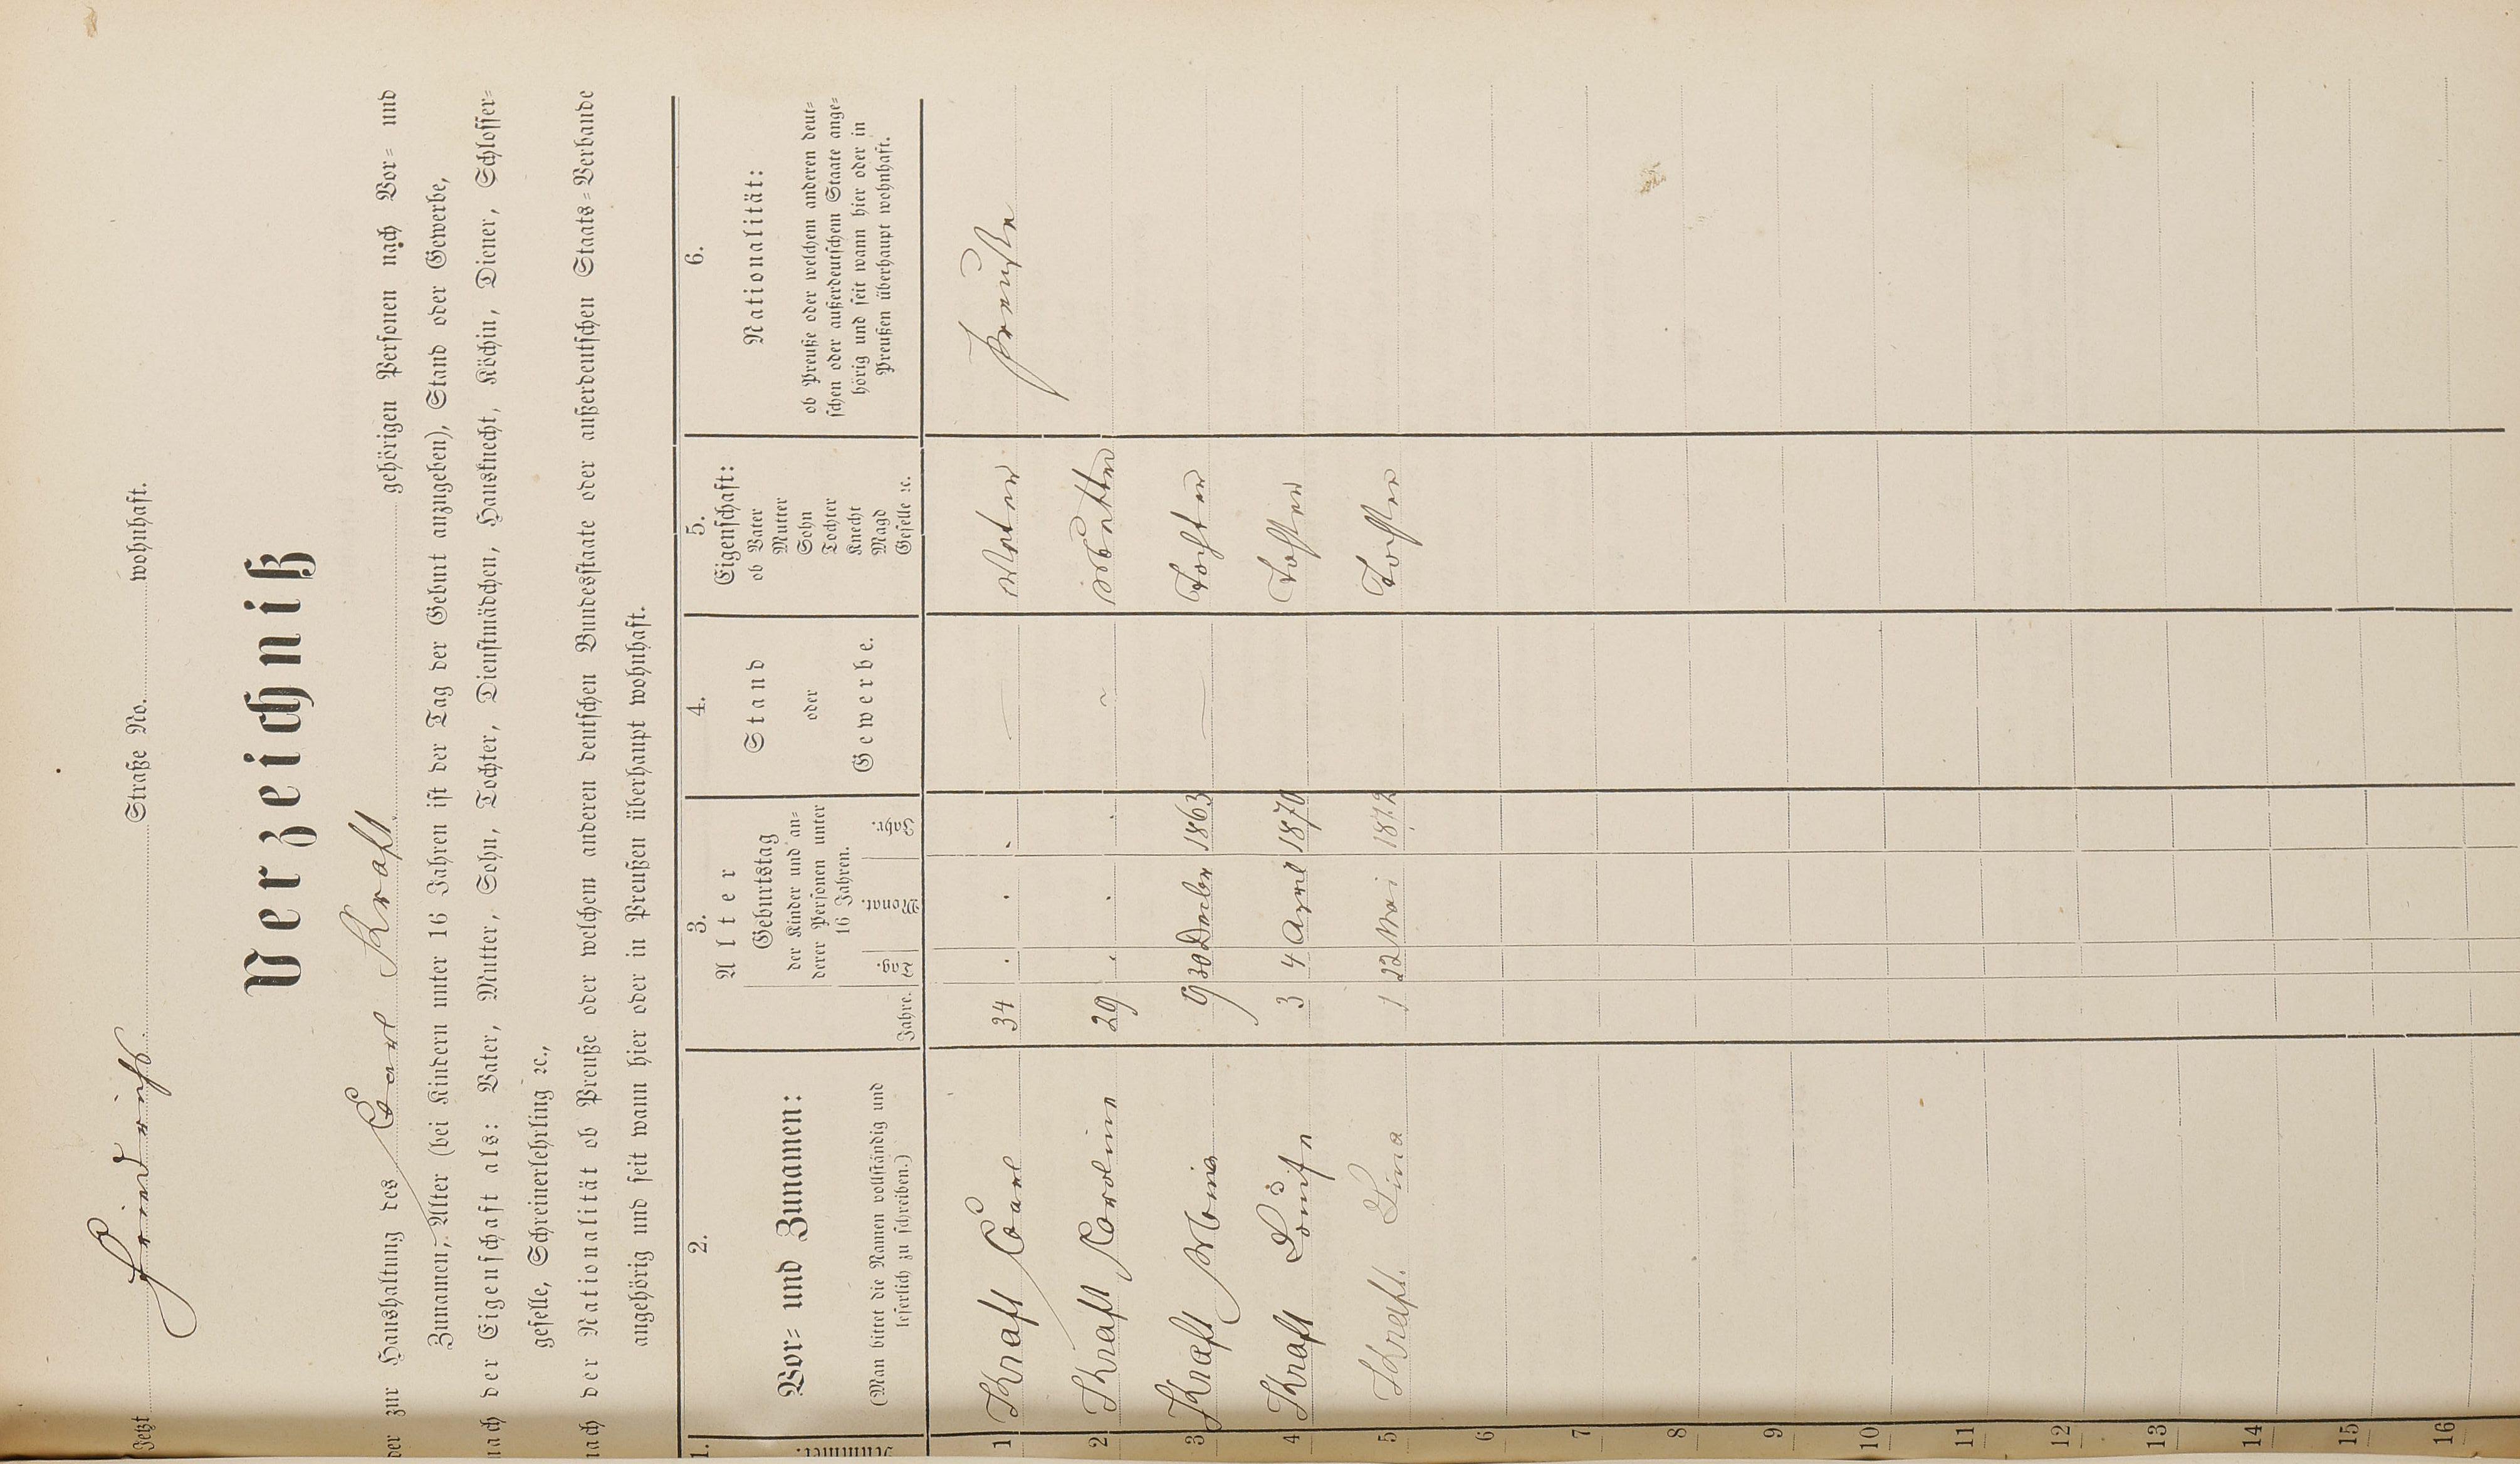 Jetzt Friedrichs Straße No. wohnhaft.
Verzeichniß
der zur Haushaltung des Carl Kraft gehörigen Personen nach Vor= und
Zunamen, Alter (bei Kindern unter 16 Jahren ist der Tag der Geburt anzugeben), Stand oder Gewerbe,
nach der Eigenschaft als: Vater, Mutter, Sohn, Tochter, Dienstmädchen, Hausknecht, Köchin, Diener, Schlosser=
geselle, Schreinerlehrling ꝛc.,
nach der Nationalität ob Preuße oder welchem anderen deutschen Bundesstaate oder außerdeutschen Staats=Verbande
angehörig und seit wann hier oder in Preußen überhaupt wohnhaft.
1. 2. 3. 4. 5. 6.
Nummer.
Vor= und Zunamen:
(Man bittet die Namen vollständig und
leserlich zu schreiben.)
Alter
Geburtstag
der Kinder und an=
derer Personen unter
16 Jahren.
Jahre. Tag. Monat. Jahr.
Stand
oder
Gewerbe.
Eigenschaft:
ob Vater
Mutter
Sohn
Tochter
Knecht
Magd
Geselle ꝛc.
Nationalität:
ob Preuße oder welchem anderen deut=
schen oder außerdeutschen Staate ange=
hörig und seit wann hier oder in
Preußen überhaupt wohnhaft.
1 Kraft Carl 34 Vater Preuße
2 Kraft Caroline 29 Mutter
3 Kraft 9 30 Decbr 1863 Tochter
4 Kraft Louise 3 4 April 1870 Tochter
5 Kraft Lina 1 22 Mai 1872 Tochter
6
7
8
9
10
11
12
13
14
15
16